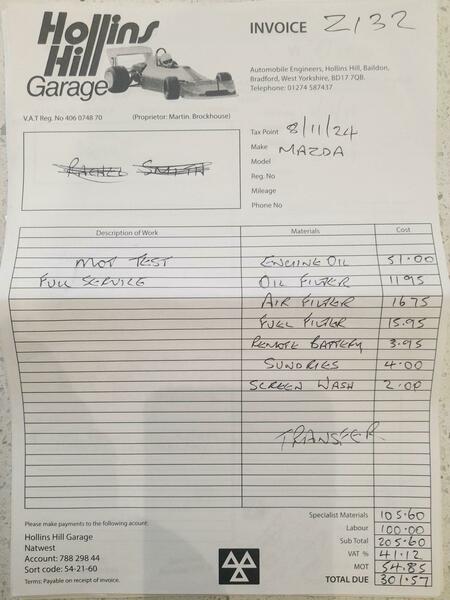 Hollins
Hill
Garage
INVOICE Z132
Automobile Engineers, Hollins Hill, Baildon,
Bradford, West Yorkshire, BD17 7QB.
Telephone: 01274 587437
V.A.T Reg. No 406 0748 70 (Proprietor: Martin. Brockhouse)
RACHEL SMITH
Tax Point 8/11/24
Make MAZDA
Model
Reg. No
Mileage
Phone No
Description of Work Materials Cost
MOT TEST ENGINE OIL 51.00
FULL SERVICE OIL FILTER 11.95
AIR FILTER 16.75
FUEL FILTER 15.95
REMOTE BATTERY 3.95
SUNDRIES 4.00
SCREEN WASH 2.00
TRANSFER
Please make payments to the following acount:
Hollins Hill Garage
Natwest
Account: 788 298 44
Sort code: 54-21-60
Terms: Payable on receipt of invoice.
Specialist Materials 105.60
Labour 100.00
Sub Total 205.60
VAT % 41.12
MOT 54.85
TOTAL DUE 301.57